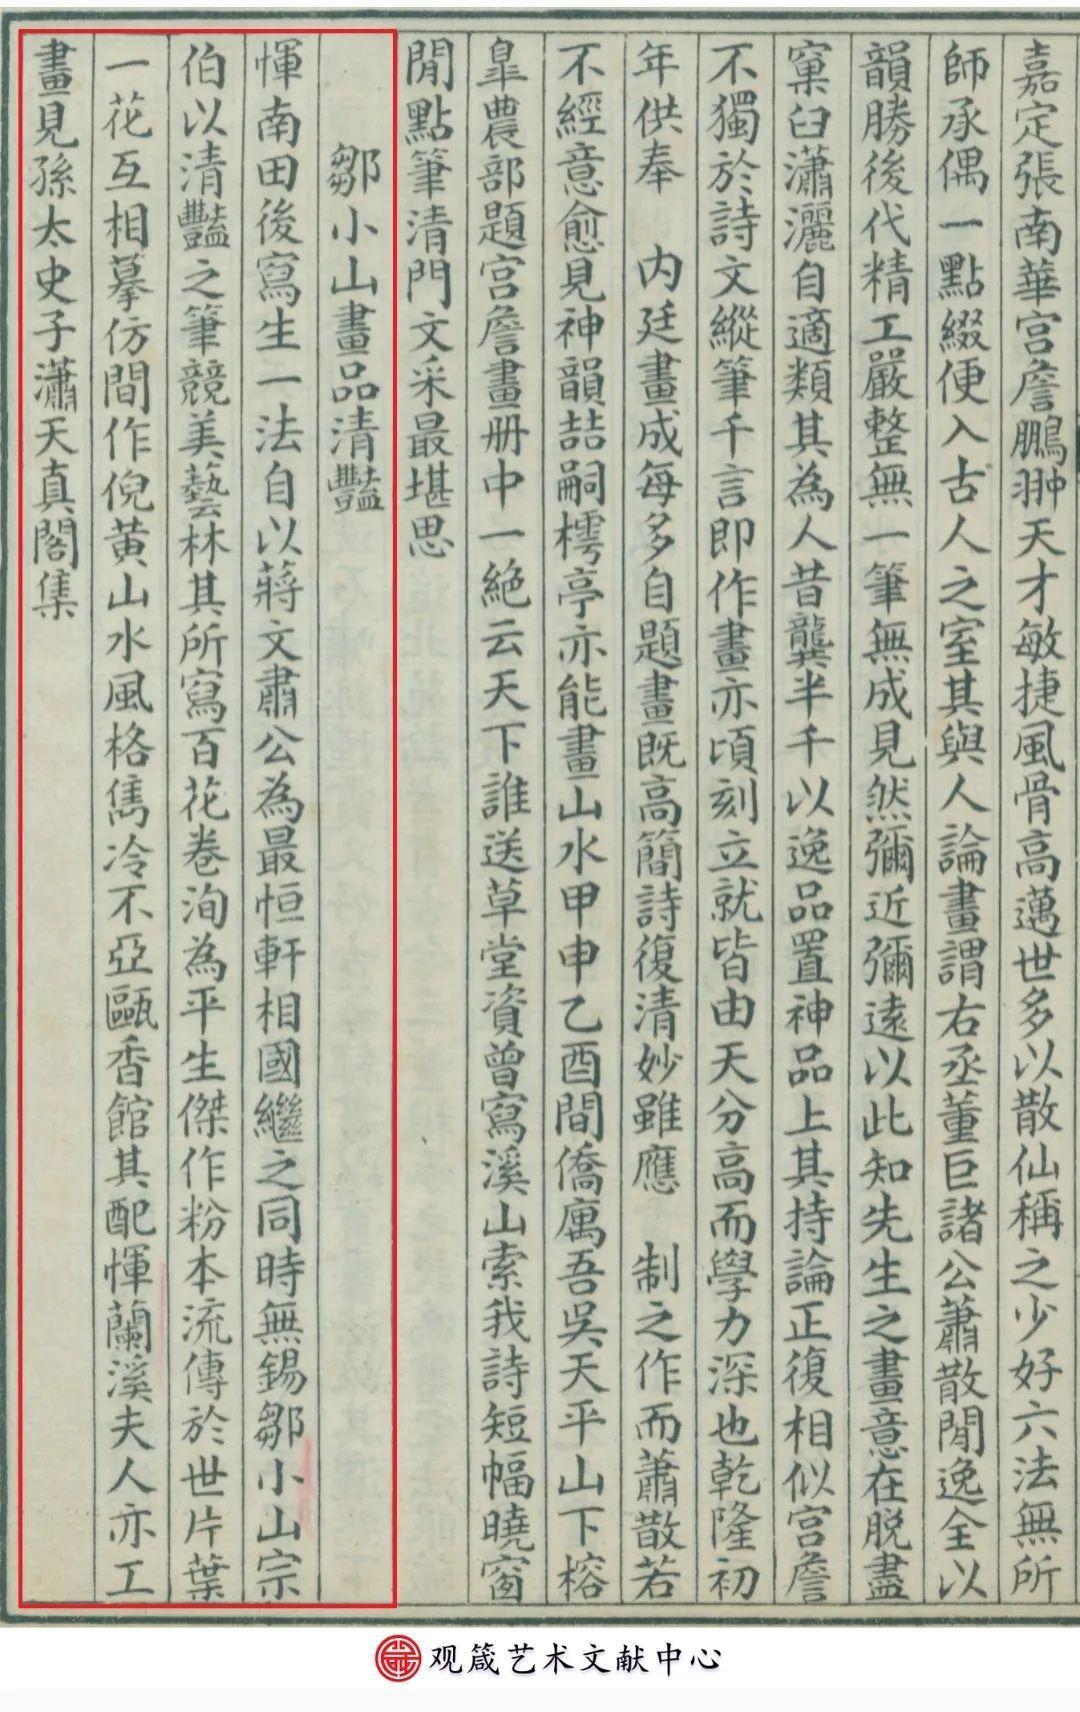 嘉定張南華宮詹鵬翀天才敏捷風骨高邁世多以散仙稱之少好六法無所
師承偶一點綴便入古人之室其與人論畫謂右丞董巨諸公蕭散閒逸全以
韻勝後代精工嚴整無一筆無成見然彌近彌遠以此知先生之畫意在脫盡
窠臼瀟灑自適類其為人昔龔半千以逸品置神品上其持論正復相似宮詹
不獨於詩文縱筆千言即作畫亦頃刻立就皆由天分高而學力深也乾隆初
年供奉 內廷畫成每多自題畫既高簡詩復清妙雖應 制之作而蕭散若
不經意愈見神韻喆嗣樗亭亦能畫山水甲申乙酉間僑寓吾吳天平山下榕
皐農部題宮詹畫册中一絕云天下誰送草堂資曾寫溪山索我詩短幅曉窗
閒點筆清門文采最堪思
鄒小山畫品清豔
惲南田後寫生一法自以蔣文肅公為最恒軒相國繼之同時無錫鄒小山宗
伯以清豔之筆競美藝林其所寫百花卷洵為平生傑作粉本流傳於世片葉
一花互相摹仿間作倪黃山水風格雋冷不亞甌香館其配惲蘭溪夫人亦工
畫見孫太史子瀟天真閣集
观箴艺术文献中心